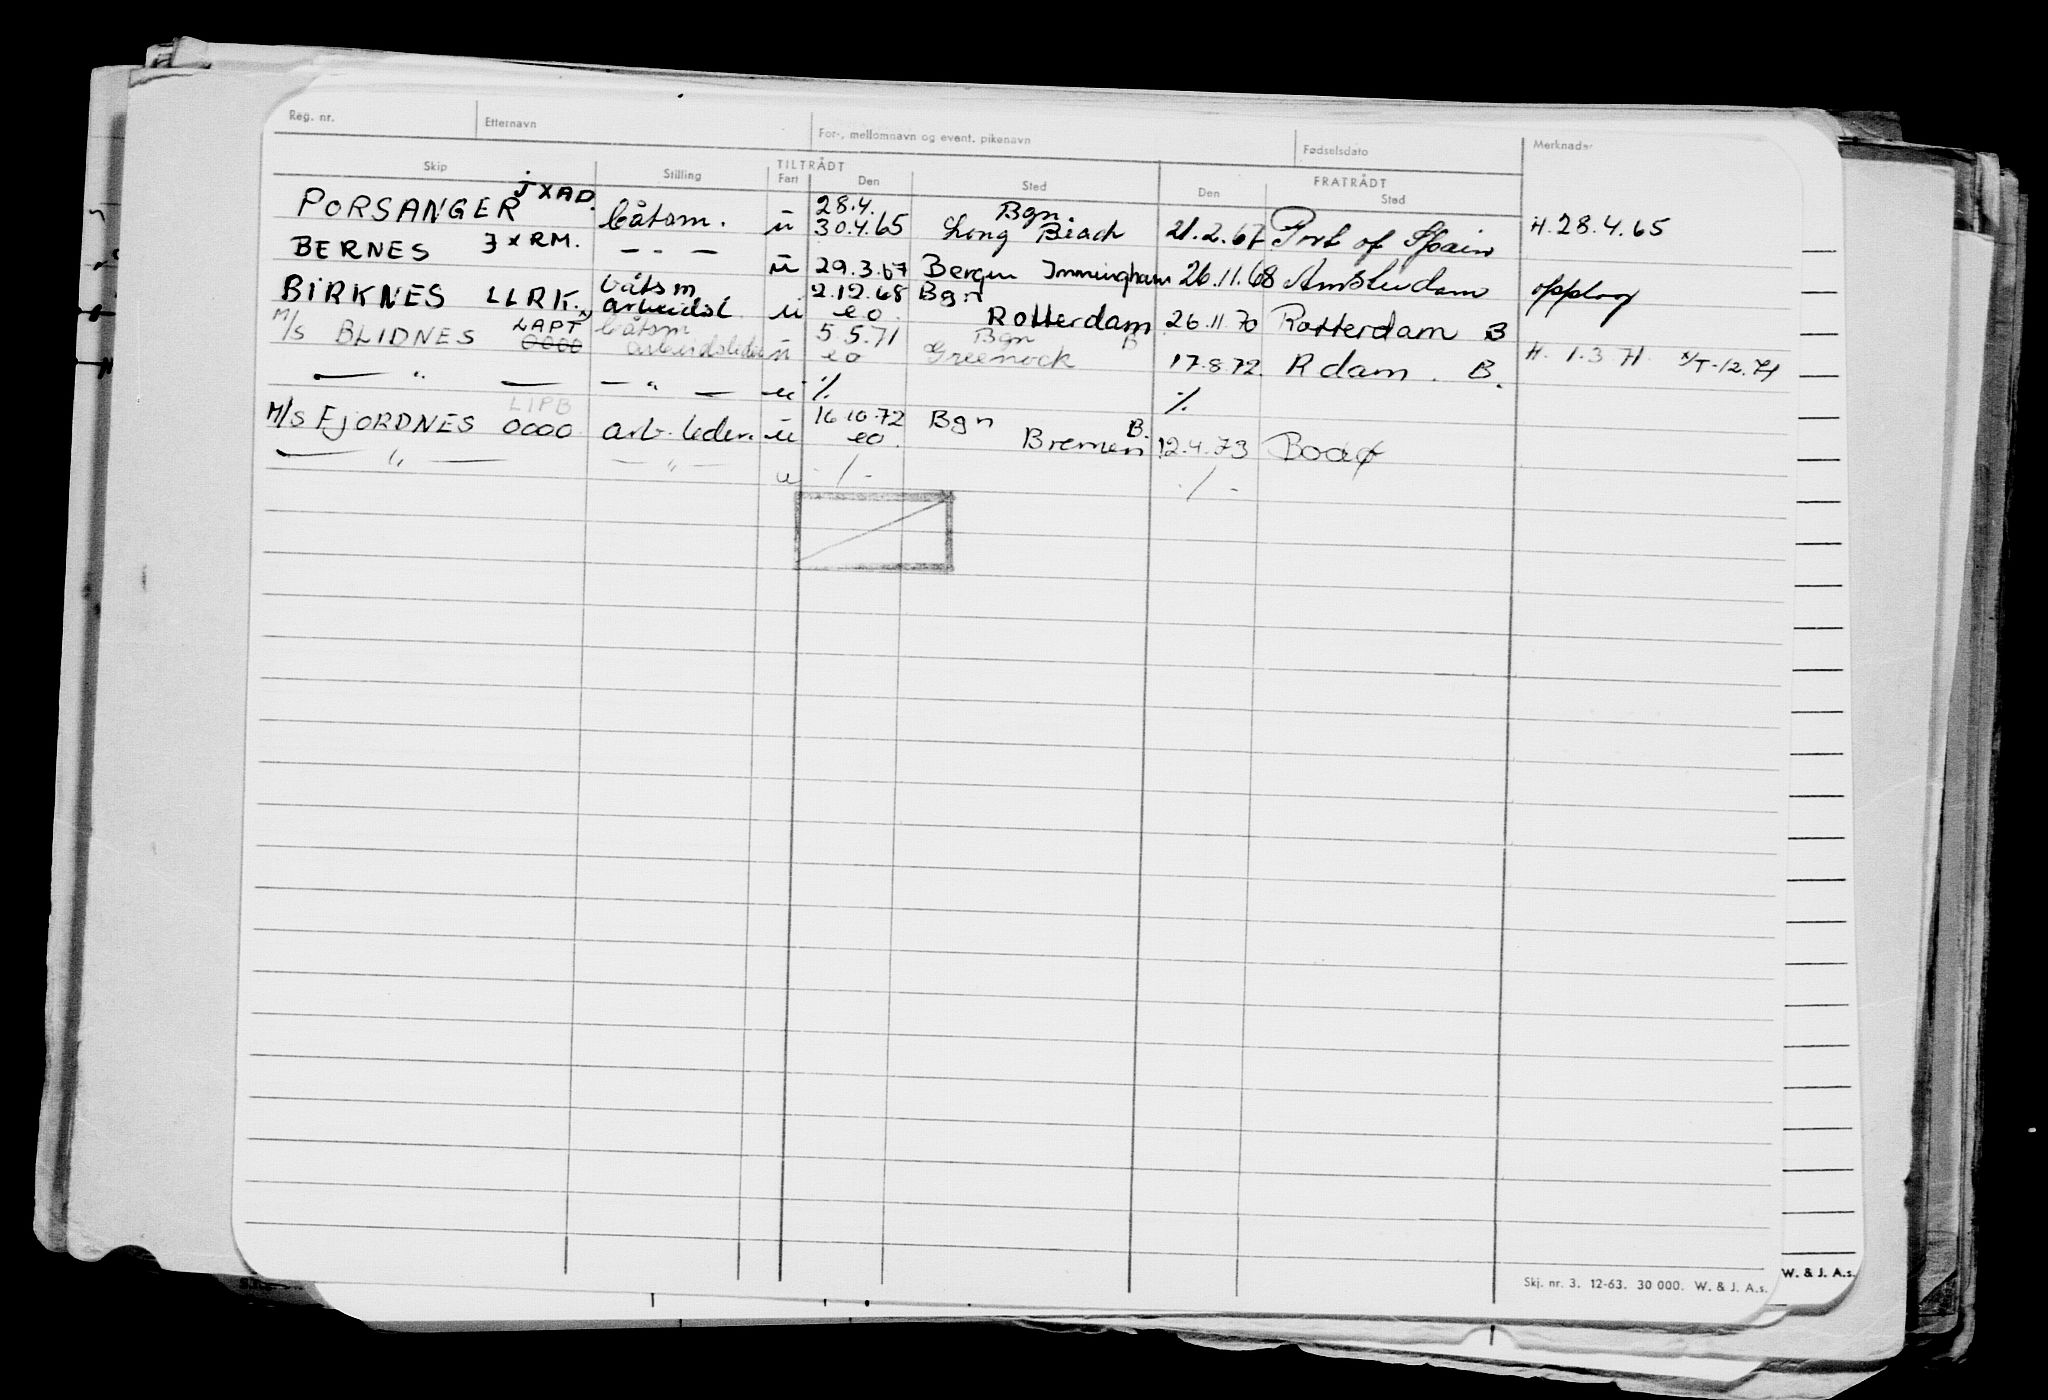 Reg. nr. Etternavn For-, mellomnavn og event. pikenavn Fødselsdato Merknader
TILTRÅDT FRATRÅDT
Skip Stilling Fart Den Sted Den Sted
PORSANGER JXAD. båtsm. u 28.4. 30.4.65 Bgn Long Beach 21.2.67 Port of Spain H. 28.4.65
BERNES JXRM. — - — u 29.3.67 Bergen Immingham 26.11.68 Amsterdam opplag
BIRKNES LLRK. båtsm arbeidsl. u 2.12.68 eo. Bgn Rotterdam 26.11.70 Rotterdam B
M/S BLIDNES LAPT 0000 båtsm arbeidsleder u 5.5.71 eo Bgn B Greenock 17.8.72. R dam. B. H. 1.3.71 N/T-12.71
— " — — " — u % %
M/S FJORDNES LIPB 0000 arb. leder. u 16.10.72 eo. Bgn B. Bremen 12.4.73 Bodø
— " — — " — u - / - - / -
Skj. nr. 3. 12-63. 30 000. W. & J. A.s.
W. & J. A.s.